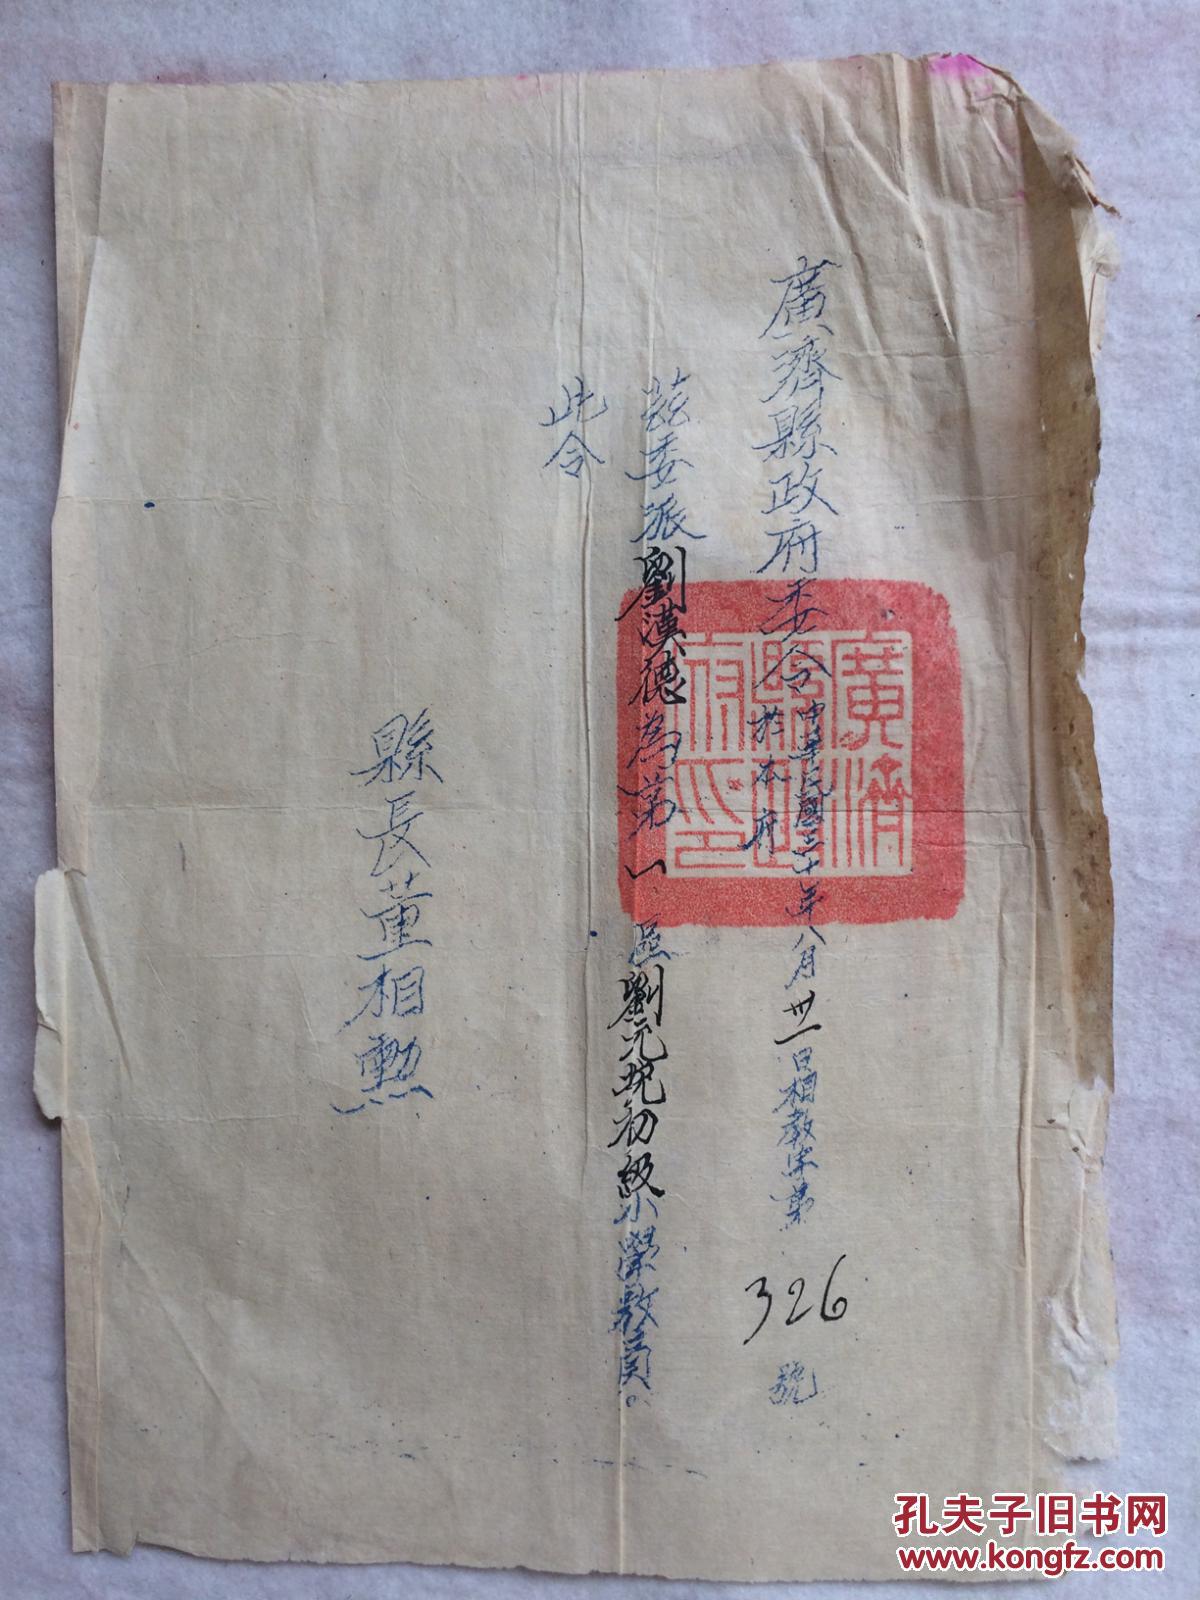 廣濟縣政府委令
中華民國三十年八月卅一日相教字第326號
於本府
茲委派劉漢德為第一區劉元垸初級小學教員。
此令
縣長董相勲
廣濟
縣政
府印
孔夫子旧书网
www.kongfz.com